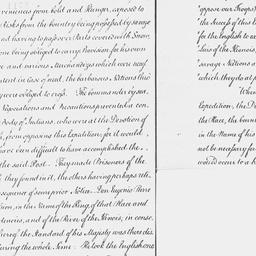 veniences from Cold and Hunger, exposed to
Risks from the Country being possessed by savage
and having to pass over Parts covered with Snow,
one being obliged to carry Provision for his own
ce and various Merchandizes which were necef
ntent in Case of need, the barbarous Nations thro'
ey were obliged to cross. The Commander by sea
Negociations and Precautions prevented a con
Body of Indians, who were at the Devotion of
h, from opposing this Expedition; for it would
have been difficult to have accomplished the
the said Post. They made Prisoners of the
they found in it, the others having perhaps reti
nsequence of some prior Notice. Don Eugenio
ion, in the Name of the King, of that Place and
ndencies, and of the River of the Ilinois; in conse
hereof the Standard of his Majesty was there dis
during the whole Time. He took the English one
oppose our Troops
the Success of this
for the English to ex
lers of the Ilinois,
savage Nations
which they do at
When
Expedition, the D
the Place, the boun
in the Name of his
not be necessary for
would occur to a